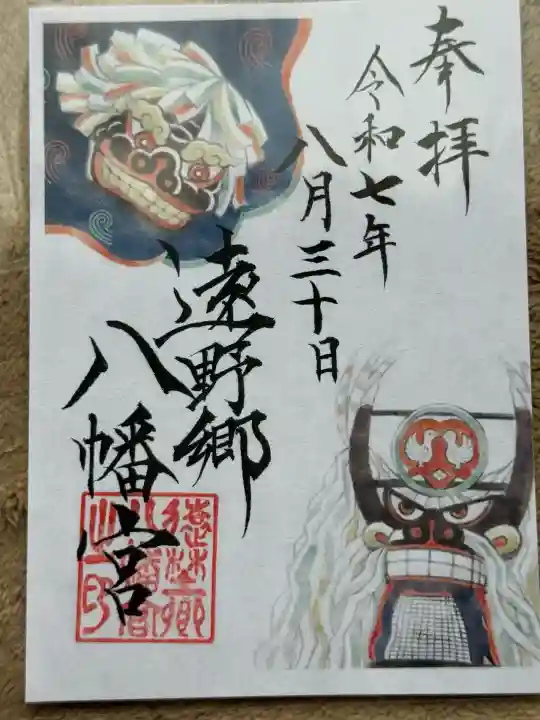 奉拝
令和七年
八月三十日
遠野郷
八幡宮